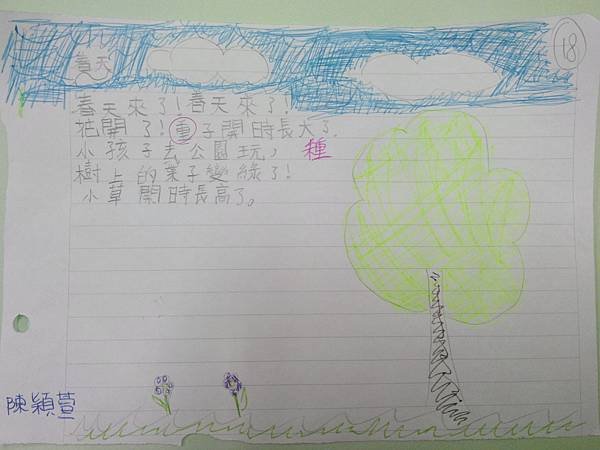 18
春天
春天來了!春天來了!
花開了!重子開時長大了.
小孩子去公園玩,
種
樹上的葉子變綠了!
小草開時長高了。
陳穎萱